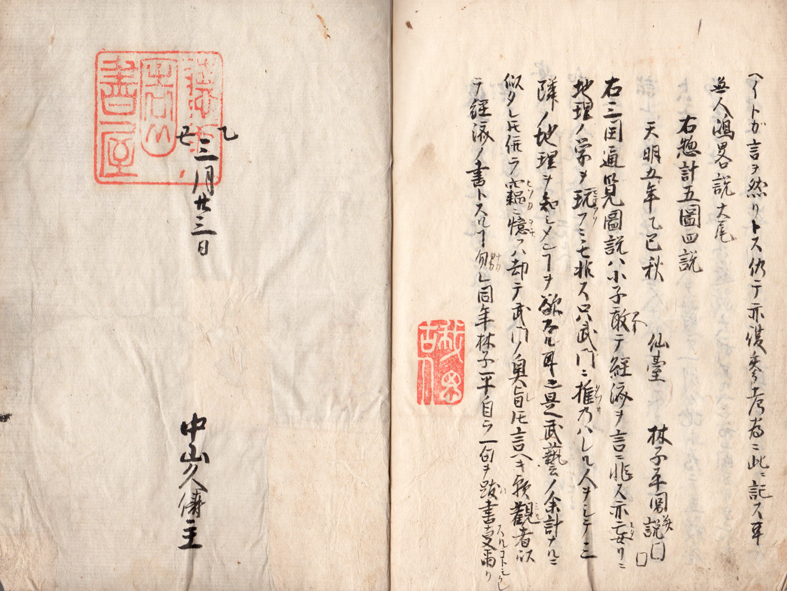 イトガ言ヲ然リトス仍テ亦後参考ノ為ニ此ニ記ス耳
無人嶋畧説大尾
右惣計五圖四説
天明五年乙巳秋 仙臺 林子平圖并説
右三国通覧圖説ハ小子敢テ経済ヲ言ニ非ス亦妄リニ
地理ノ学ヲ玩フニモ非ス只武門ニ推ハレル人ヲシテ三
隣ノ地理ヲ知シメンヿヲ欲スル耳是武藝ノ余計ナルニ
似タレ𪜈併ラ竊ニ憶ハ却テ武門ノ奥旨𪜈言ヘキ歟観者以
テ経済ノ書トスルヿ勿レ同年林子平自ラ一句ヲ跋書
乙
三月廿三日
書屋
中山久
主